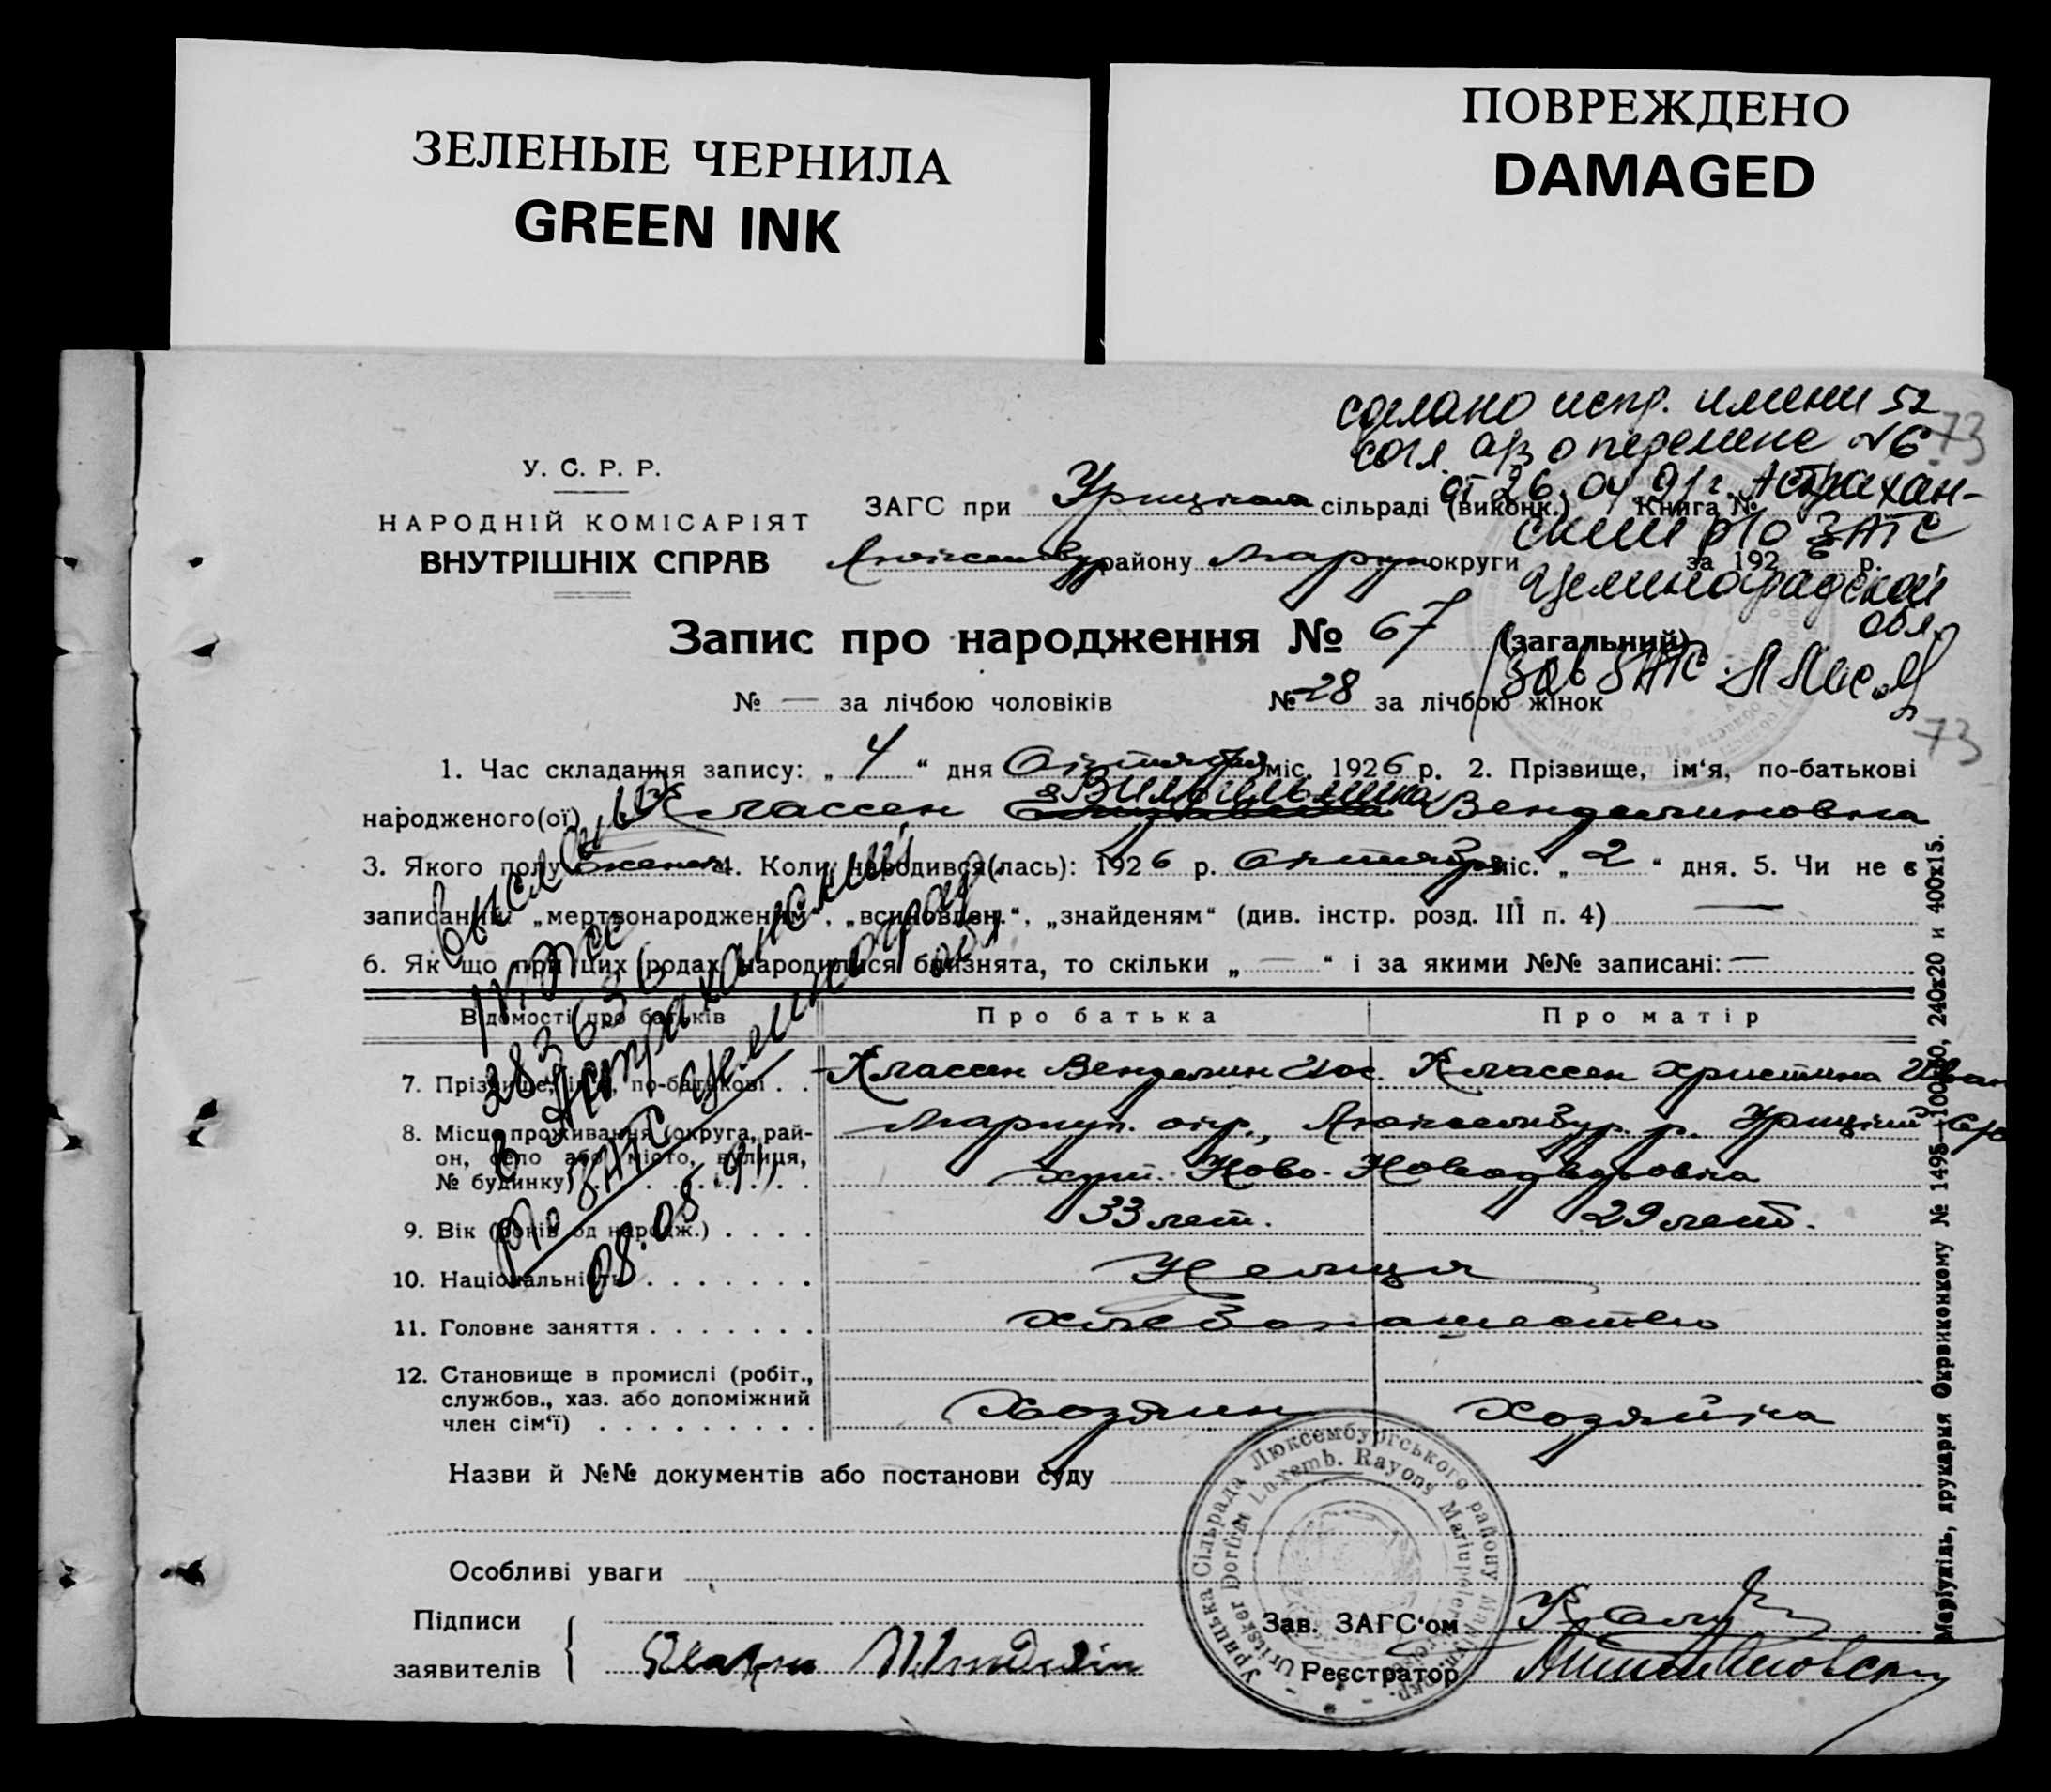 ЗЕЛЕНЫЕ ЧЕРНИЛА
GREEN INK
ПОВРЕЖДЕНО
DAMAGED
сделано испр. имени 52
согл. а/з о перемене №6 73
от 26.04.91г. Астрахан-
ским р/о ЗАГС
Целиноградской
обл.
Зав ЗАГС
У. С. Р. Р.
НАРОДНІЙ КОМІСАРІЯТ
ВНУТРІШНІХ СПРАВ
ЗАГС при Урицком сільраді (виконк.) Книга №
Люксембур району Мариуп округи за 1926 р.
Запис про народження № 67 (загальний)
№ — за лічбою чоловіків № 28 за лічбою жінок
73
1. Час складання запису: „ 4 “ дня Октября міс. 1926 р. 2. Прізвище, ім‘я, по-батькові
Вильгельмина
народженого(ої) Классен Венделиновна
3. Якого полу женск 4. Коли народився(лась): 1926 р. Октября міс. „ 2 “ дня. 5. Чи не є
записаний: „мертвонародженим“, „всиновлен.“, „знайденям“ (див. інстр. розд. III п. 4) —
6. Як що при цих родах народилися близнята, то скільки „ — “ і за якими №№ записані: —
Відомості про батьків Про батька Про матір
7. Прізвище, ім‘я, по-батькові . . Классен Венделин Иос. Классен Христина Иван
8. Місце проживання (округа, рай-
он, село або місто, вулиця,
№ будинку) Мариуп. окр., Люксембур. р. Урицкий с/р
хут. Ново-Новодворовка
9. Вік (років од народж.) . . . . 33 лет. 29 лет.
10. Національність . . . . . . . Немця
11. Головне заняття . . . . . . . хлебопашество
12. Становище в промислі (робіт.,
службов., хаз. або допоміжний
член сім‘ї) . . . . . . . . . Хозяин Хозяйка
Назви й №№ документів або постанови суду
Особливі уваги
Підписи
заявителів
Зав. ЗАГС‘ом
Реєстратор
выслано
в Астраханский
р/о ЗАГС Целиноград.
обл
08.05.91
Урицька Сільрада Люксембургського району Маріуп. окр.
Uritsker Dorfrat Luxemb. Rayons Mariupoler
Маріупіль, друкарня Окрвиконкому № 1495—10000, 240х20 и 400х15.